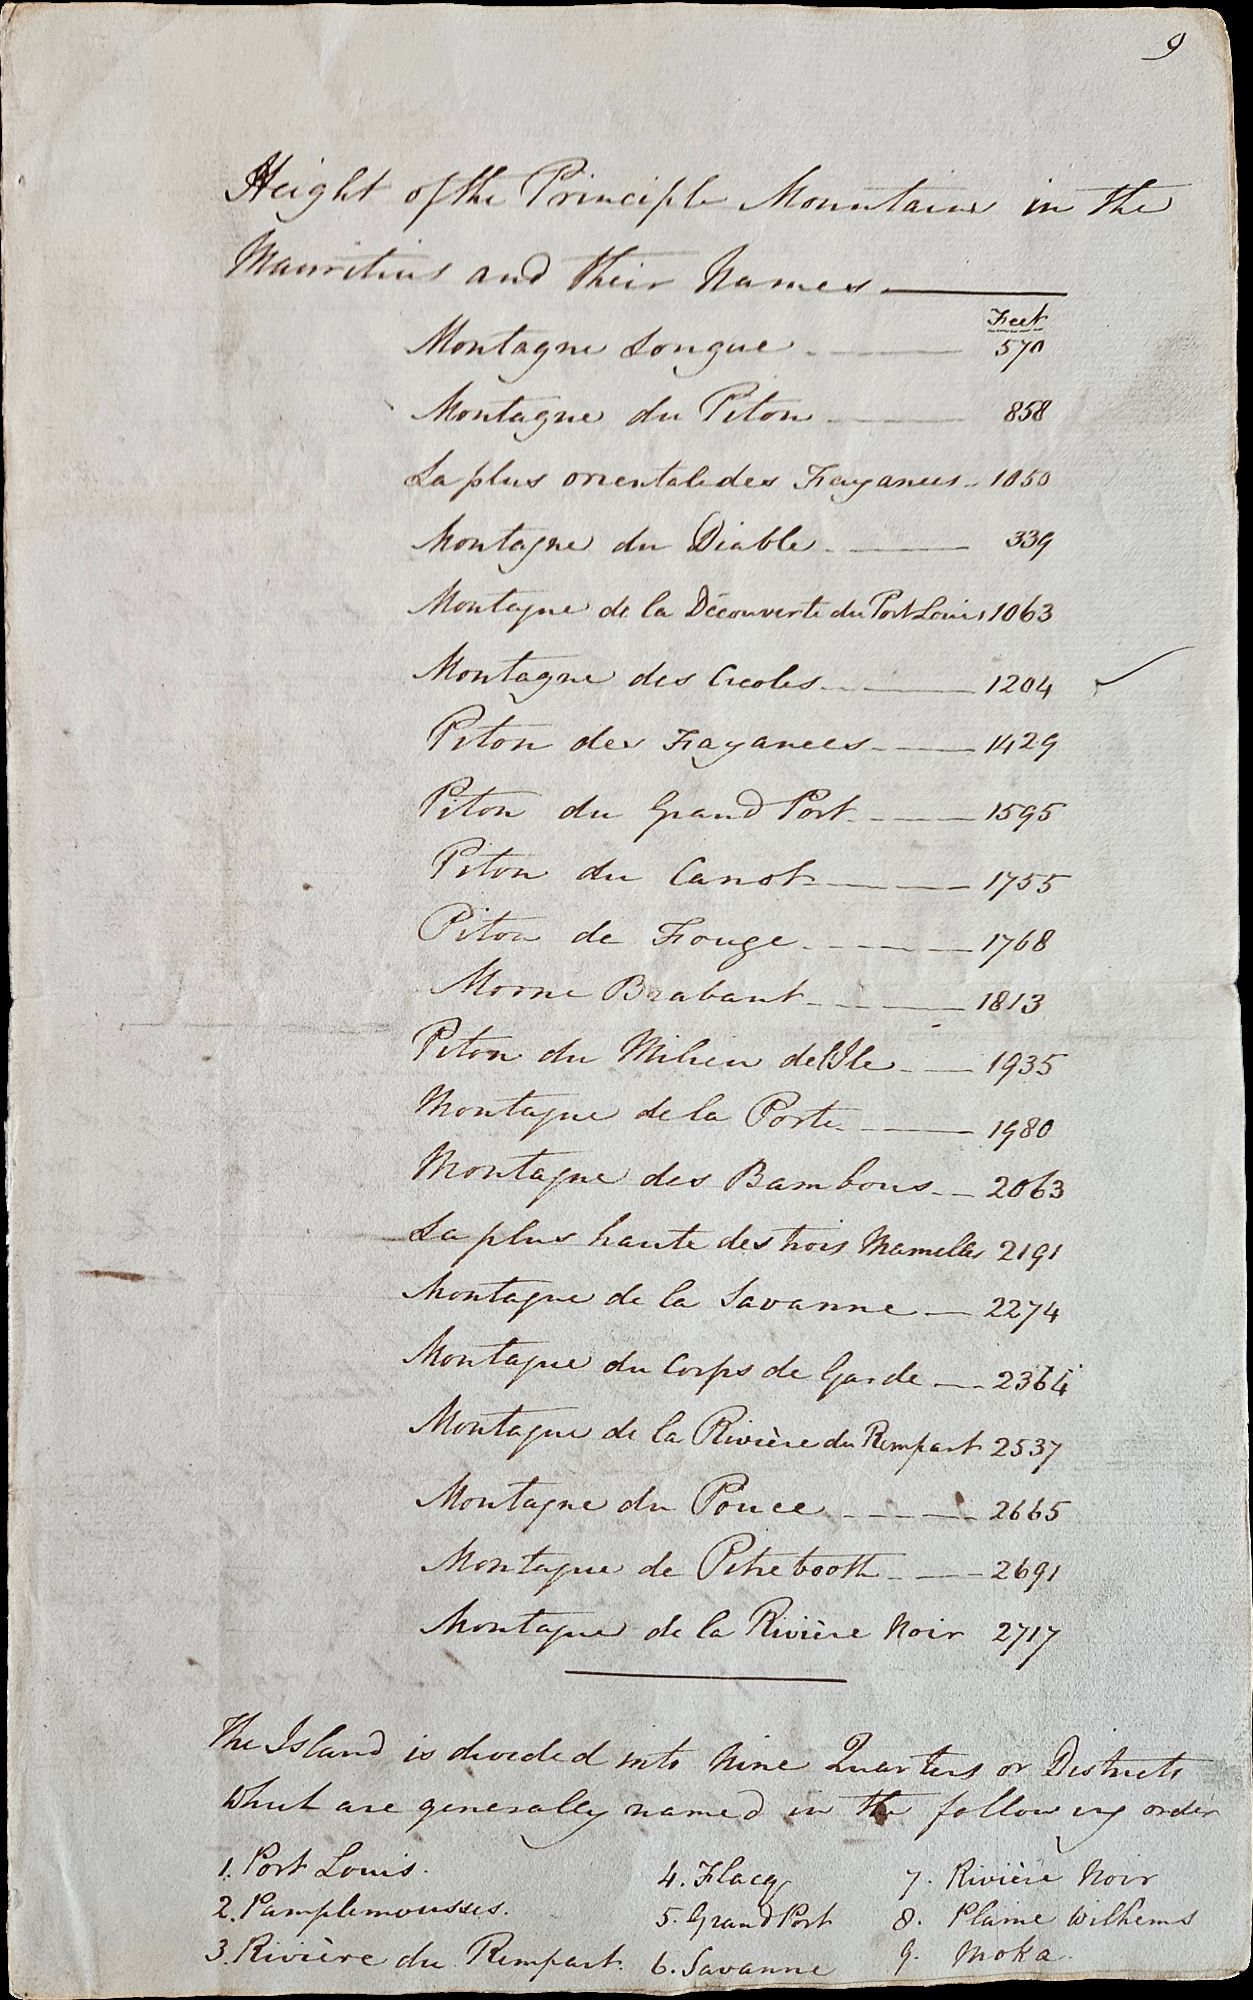 9
Height of the Principle Mountains in the
Mauritius and their Names
Feet
Montagne Longue 570
Montagne du Piton 858
La plus orientale des Fayances 1050
Montagne du Diable 339
Montagne de la Découverte du Port Louis 1063
Montagne des Creoles 1204
Piton des Fayances 1429
Piton du Grand Port 1595
Piton du Canot 1755
Piton de Fouge 1768
Morne Brabant 1813
Piton du Milieu de l'Ile 1935
Montagne de la Porte 1980
Montagne des Bambous 2063
La plus haute des trois Mamelles 2191
Montagne de la Savanne 2274
Montagne du Corps de Garde 2364
Montagne de la Rivière du Rempart 2537
Montagne du Pouce 2665
Montagne de Pitrebooth 2691
Montagne de la Rivière Noir 2717
The Island is divided into Nine Quarters or Districts
which are generally named in the following order
1. Port Louis. 4. Flacq 7. Rivière Noir
2. Pamplemousses. 5. Grand Port 8. Plaine Wilhems
3. Rivière du Rempart. 6. Savanne 9. Moka.